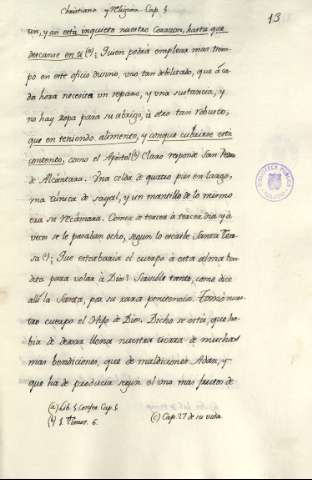 Christiano y Religioso Cap. 5
13
nen, y aun está inquieto nuestro Corazon, hasta que
descanse en ti (a); Quien podrá emplear mas tiem-
po en este oficio divino, uno tan debilitado, que á ca-
da hora necesita un reparo, y una sustancia, y
no hay ropa para su abrigo, ù otro tan robusto,
que en teniendo alimento, y conque cubrirse está
contento, como el Apostol (b) Claro responde San Pedro
de Alcántara. Una celda de quatro pies en largo,
una túnica de sayal, y un mantillo de lo mismo
era su recámara. Comer a tercer a tercer dia, y à
veces se le pasaban ocho, segun lo escribe Santa Tere-
sa (c); Que estorbaria el cuerpo à esta alma ben-
dita para volar à Dios? Sensible tanto, como dice
allí la Santa, por su rara penitencia. Tomó nues-
tro cuerpo el Hijo de Dios. Dicho se estâ, que ha-
bia de dexar llena nuestra tierra de muchas
mas bendiciones, que de maldiciones Adan, y
que ha de producir según el uno mas frutos de
(a) Lib. 1. Confes. Cap. 1.
(b) 1. Timot. 6.
(c) Cap. 27 de su vida
BIBLIOTECA PUBLICA